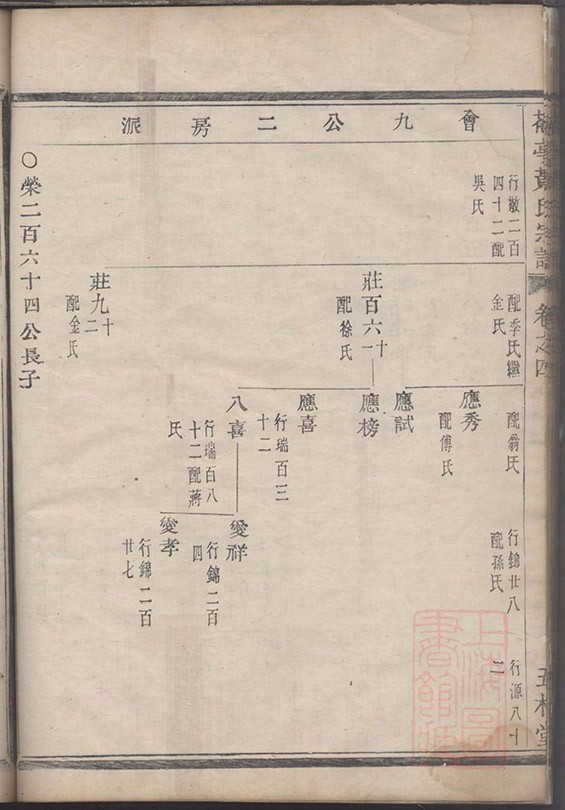 氏宗譜
卷之四
堂
會九公二房派
行敬二百
四十二配
吳氏
配李氏繼
金氏
配翁氏
行錦廿八
配孫氏
行源八十
二
應秀
配傅氏
應試
莊百六十一
配徐氏
應榜
應喜
行瑞百三
十二
八喜
行瑞百八
十二配蔣
氏
愛祥
行錦二百
四
愛孝
行錦二百
廿七
莊九十二
配金氏
○榮二百六十四公長子
上海圖書館藏